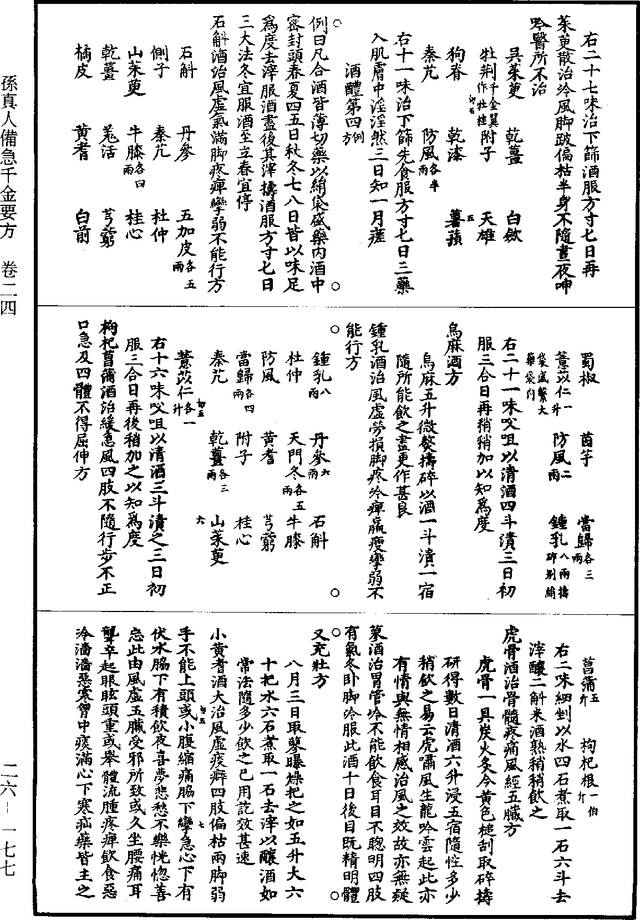 右二十七味治下篩酒服方寸匕日再
茱萸散治冷風腳跛偏枯半身不隨晝夜呻
吟醫所不治
吳茱萸 乾薑 白斂
牡荊千金翼作牡桂 附子 天雄
狗脊 乾漆 薯蕷
秦艽 防風各半
右十一味治下篩先食服方寸匕日三藥
入肌膚中淫淫然三日知一月瘥
酒醴第四例
例曰凡合酒皆薄切藥以絹袋盛藥內酒中
密封頭春夏四五日秋冬七八日皆以味足
為度去滓服酒盡後其滓擣酒服方寸匕日
三大法冬宜服酒至立春宜停
石斛酒治風虛氣滿腳疼痺攣弱不能行方
石斛 丹參 五加皮各五兩
側子 秦艽 杜仲
山茱萸 牛膝各四兩 桂心
乾薑 羌活 芎藭
橘皮 黃耆 白前
蜀椒 茵芋 當歸各三兩
薏苡仁一升 防風二兩 鍾乳八兩擣碎別絹袋盛繫大藥袋內
右二十一味㕮咀以清酒四斗漬三日初
服三合日再稍稍加以知為度
烏麻酒方
烏麻五升微熬擣碎以酒一斗漬一宿
隨所能飲之盡更作甚良
鍾乳酒治風虛勞損腳疼冷痺羸瘦攣弱不
能行方
鍾乳八兩 丹參六兩 石斛
杜仲 天門冬各五兩 牛膝
防風 黃耆 芎藭
當歸各四兩 附子 桂心
秦艽 乾薑各三兩 山茱萸
薏苡仁各一升
右十六味㕮咀以清酒三斗漬之三日初
服三合日再後稍加之以知為度
枸杞菖蒲酒治緩急風四肢不隨行步不正
口急及四體不得屈伸方
菖蒲五斤 枸杞根一伯斤
右二味細剉以水四石煮取一石六斗去
滓釀二斛米酒熟稍稍飲之
虎骨酒治骨髓疼痛風經五臟方
虎骨一具炭火炙令黃色槌刮取碎擣
研得數日清酒六升浸五宿隨性多少
稍飲之易云虎嘯風生龍吟雲起此亦
有情與無情相感治風之效故亦無疑
蓼酒治胃管冷不能飲食耳目不聰明四肢
有氣冬臥腳冷服此酒十日後目既精明體
又充壯方
八月三日取蓼曝燥把之如五升大六
十把水六石煮取一石去滓以釀酒如
常法隨多少飲之已用訖效甚速
小黃耆酒大治風虛痰癖四肢偏枯兩腳弱
手不能上頭或小腹縮痛脇下攣急心下有
伏水脇下有積飲夜喜夢悲愁不樂恍惚善
忘此由風虛五臟受邪所致或久坐腰痛耳
聾卒起眼眩頭重或舉體流腫疼痺飲食惡
冷濇濇惡寒胷中痰滿心下寒疝藥皆主之
孫真人備急千金要方 卷二四
二六－一七七